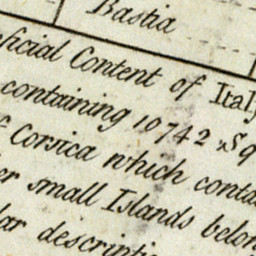 Bastia
ficial Content of Italy
containing 10742 Sq
f Corsica which conta
er small Islands belon
lar descriptio